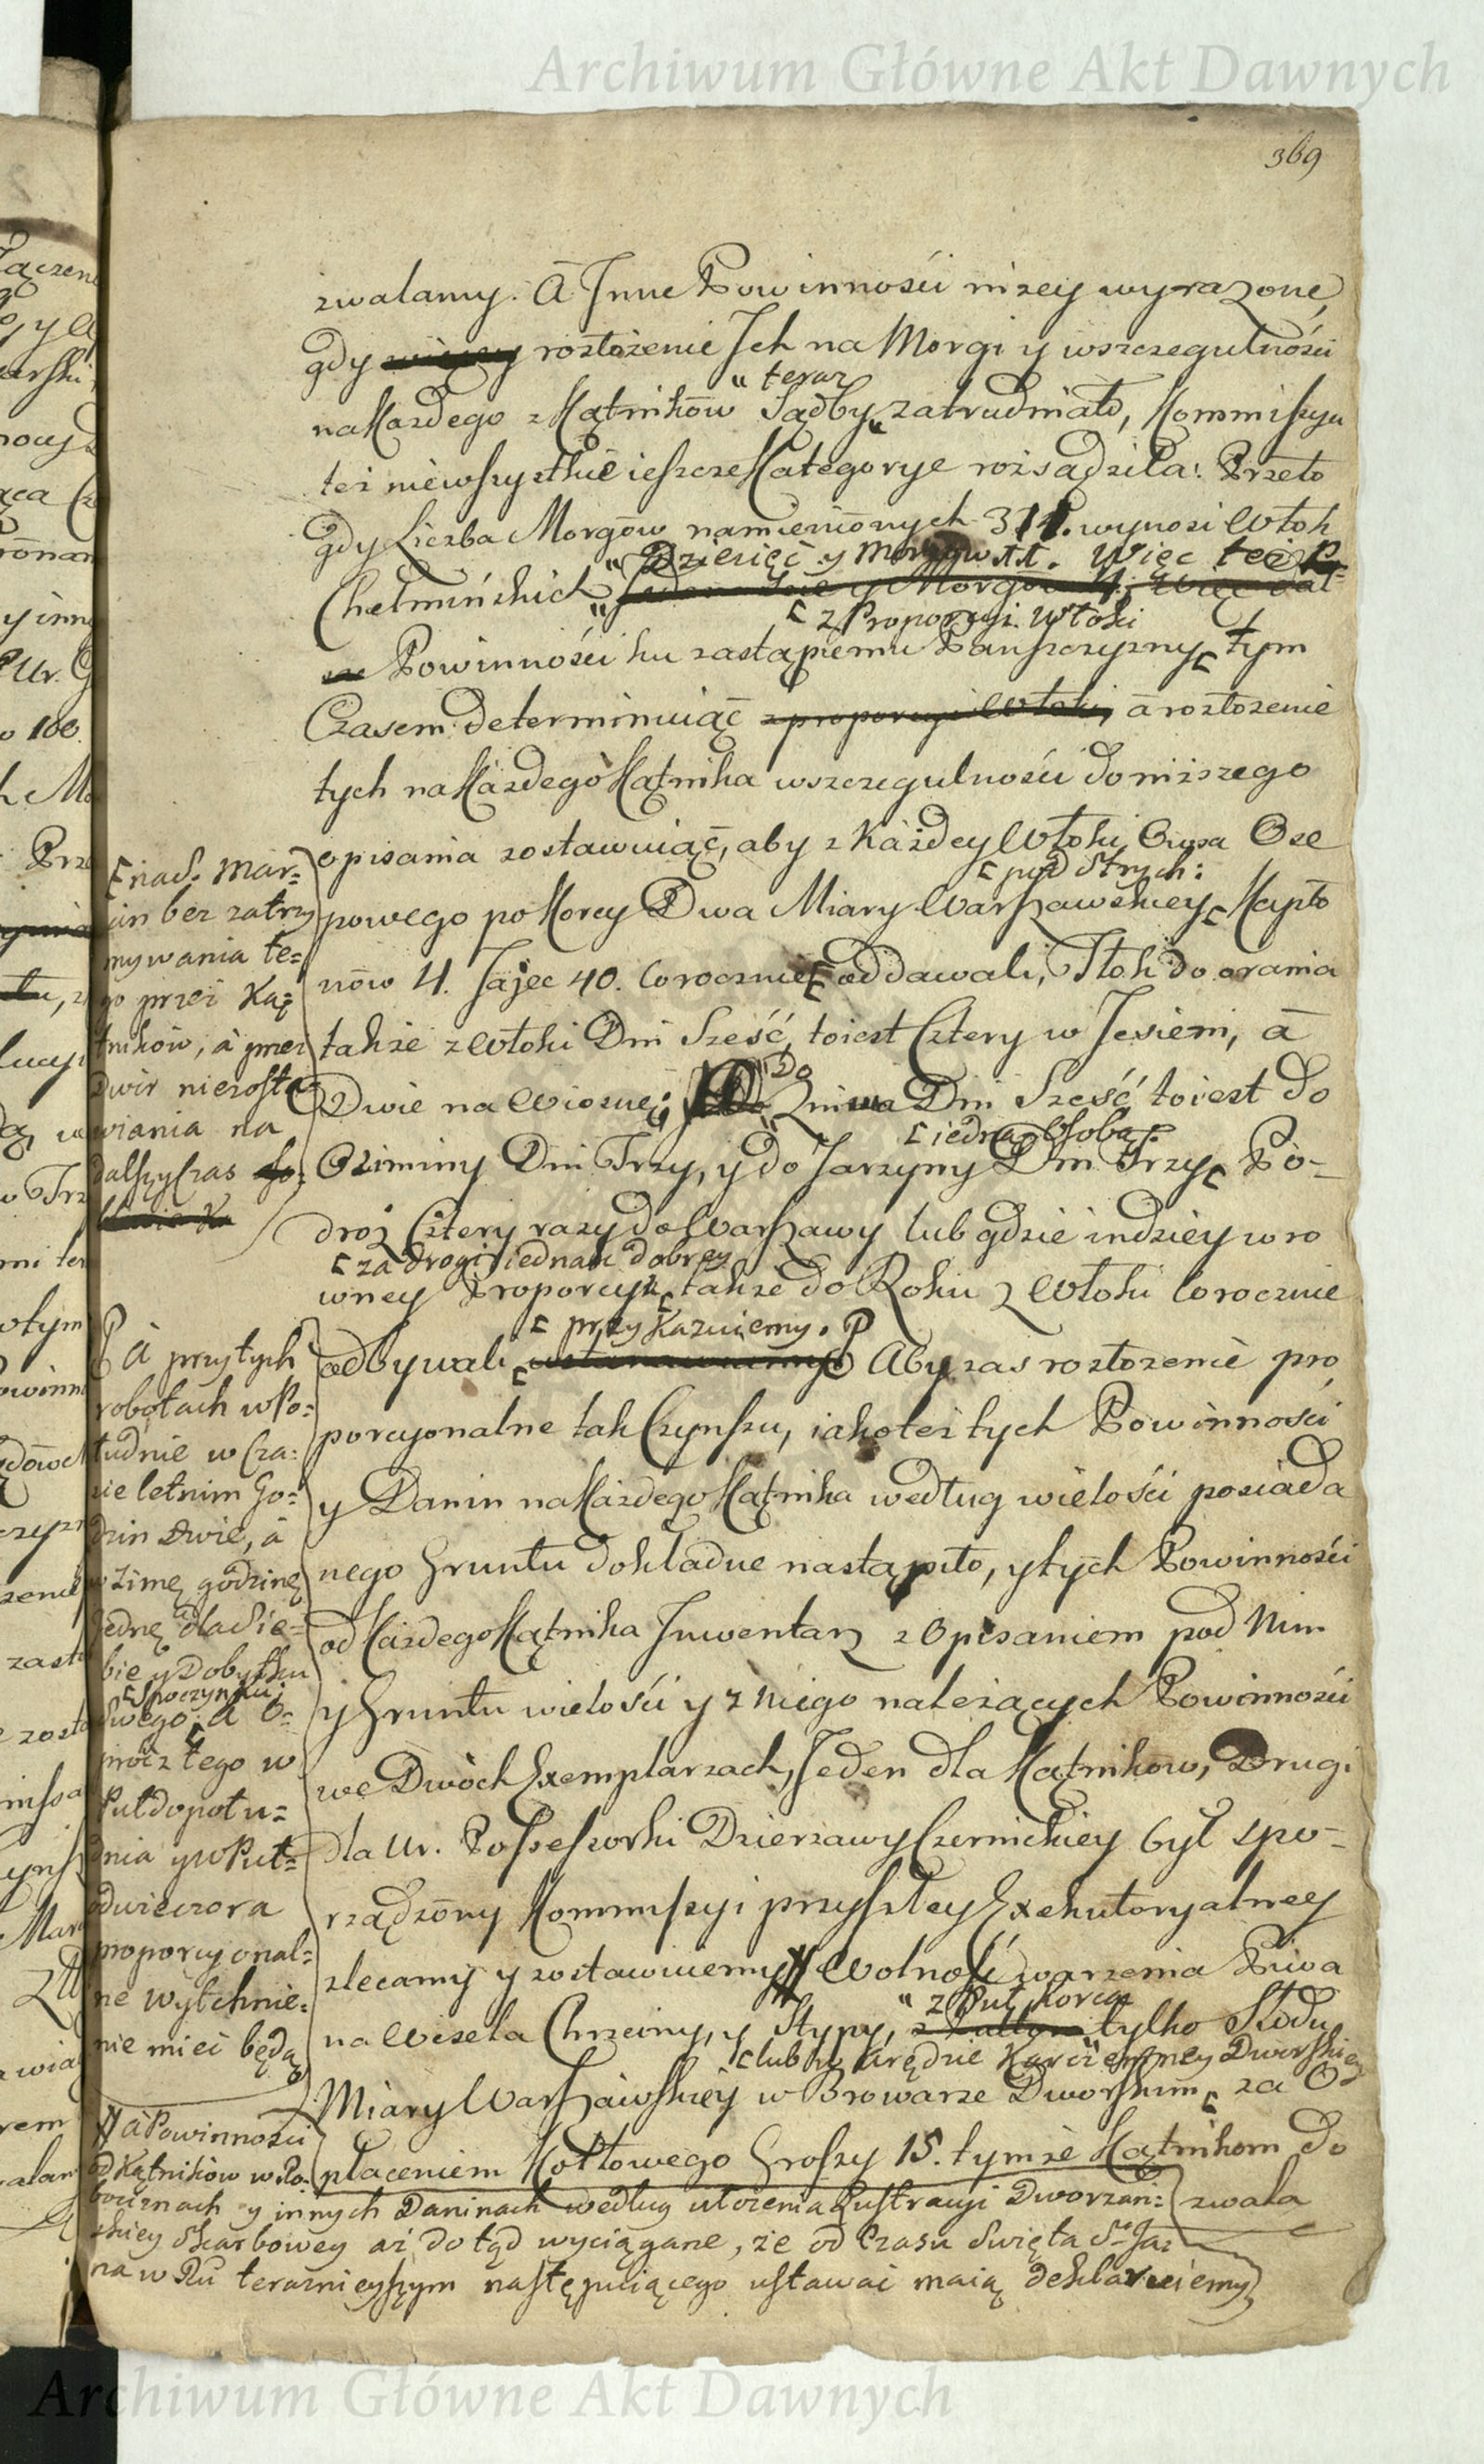 Archiwum Główne Akt Dawnych
369
zwalamy. A Inne Powinności niżey wyrażone,
gdy więcey rozłożenie Ich na Morgi y wszczegulności
" teraz
na Każdego z Kątników Sądby " zatrudniało, Kommissya
też niewszystkie ieszcze Kategorye rozsądziła: Przeto
gdy Liczba Morgów namienionych 311. wynosi Włok
" Dziesięć y Morgów 11. Więc też
Chełmińskich " y Morgów więc
[ z Proporcyi Włoki
Powinności ku zastąpieniu Pańszczyzny [ tym
Czasem determinuiąc z proporcyi Włoki, a rozłożenie
tych na Każdego Kątnika wszczegulności do niższego
opisania zostawuiąc, aby z Każdey Włoki Owsa Ose
[ pod Strych:
powego po Korcy Dwa Miary Warszawskiey [ Kapło
nów 4. Jajec 40. Corocznie [ oddawali, Tłok do orania
także z Włoki Dni Sześć, toiest Cztery w Jesieni, á
" Do
Dwie na Wiosnę; Żniwa Dni Sześć toiest do
[ iedną Osobą.
Oziminy Dni Trzy, y do Jarzyny Dni Trzy [ Po-
droż Cztery razy do Warszawy lub gdzie indziey w ro
[ za drogi iednak dobrey
wney Proporcyi [ także do Roku z Włoki Corocznie
[ przykazuiemy. P
odbywali [ ustanawiamy Aby zas rozłożenie pro
porcyonalne tak Czynszu, iako też tych Powinności
y Danin na Każdego Kątnika według wielości posiada
nego Gruntu dokładne nastąpiło, y tych Powinności
od Każdego Kątnika Inwentarz z Opisaniem pod Nim
y Gruntu wielości y z niego należących Powinności
we Dwóch Exemplarzach, Jeden dla Kątników, Drugi
dla Ur. Possessorki Dzierzawy Czernickiey był spo-
rządzony Kommissyi przyszłey Exekutoryalney
zlecamy y zostawuiemy # Wolność warzenia Piwa
" z Puł Korca
na Wesela Chrzciny, y Stypy, tylko Słodu
[ lub w Arędzie Karczemney Dworskiey
Miary Warszawskiey w Browarze Dworskim [ za O-
płaceniem Kotłowego Groszy 15. tymże Kątnikom do
zwala
[ nad. Mar-
cin bez zatrzy
mywania te-
go przez Ką-
tników, á przez
Dwór niezosta
wiania na
dalszy Czas
P A przy tych
robotach w Po-
łudnie w Cza-
sie letnim Go-
dzin dwie, á
w zimę godzinę
Jednę dla Sie-
bie y Dobytku
[ Spoczynku;
swego [ á o-
prócz tego w
Puł do połu-
dnia y w Puł-
odwieczora
proporcyonal-
ne wytchnie-
nie mieć będą
# á Powinności
od Kątników w Ro-
bociznach y innych Daninach według ułożenia Lustracyi Dworzani-
skiey Skarbowey aż do tąd wyciągane, że od Czasu Święta S. Ja-
na w Ru teraznieyszym następuiącego ustawać maią deklaruiemy
Archiwum Główne Akt Dawnych